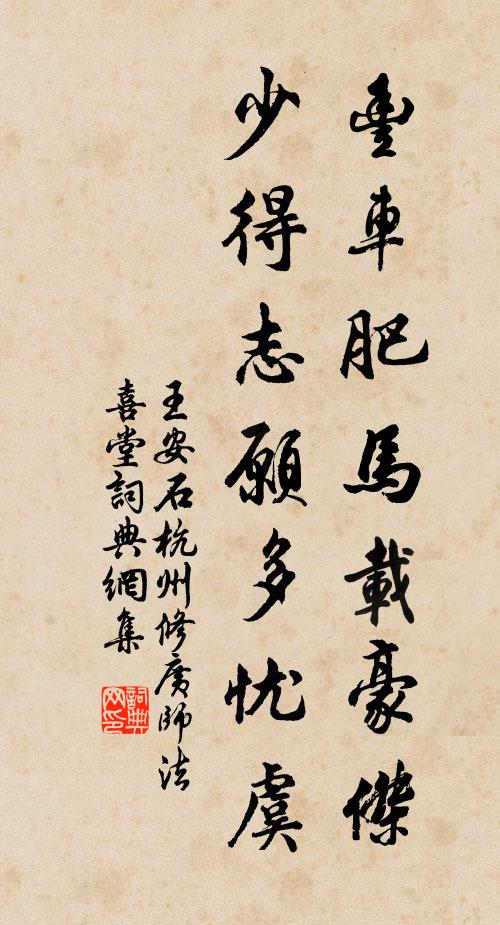 豊車肥馬載豪傑
少得志願多忧虞
王安石杭州修廣師法
喜堂詞典網集
詞典網印